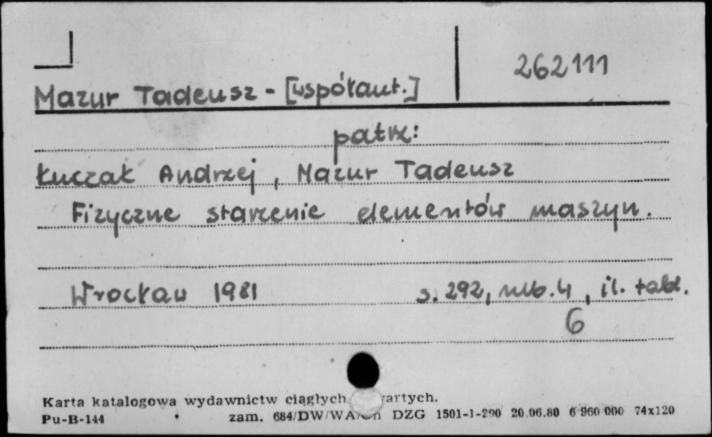 262111
Mazur Tadeusz - [współaut.]
patrz:
Łuczak Andrzej, Mazur Tadeusz
Fizyczne starzenie elementów maszyn.
Wrocław 1981 s. 292, nlb. 4, il. tabl.
6
Karta katalogowa wydawnictw ciągłych
Pu-B-144 zam. 684/DW/WA DZG 1501-1-200 20.06.80 6 960 000 74x120